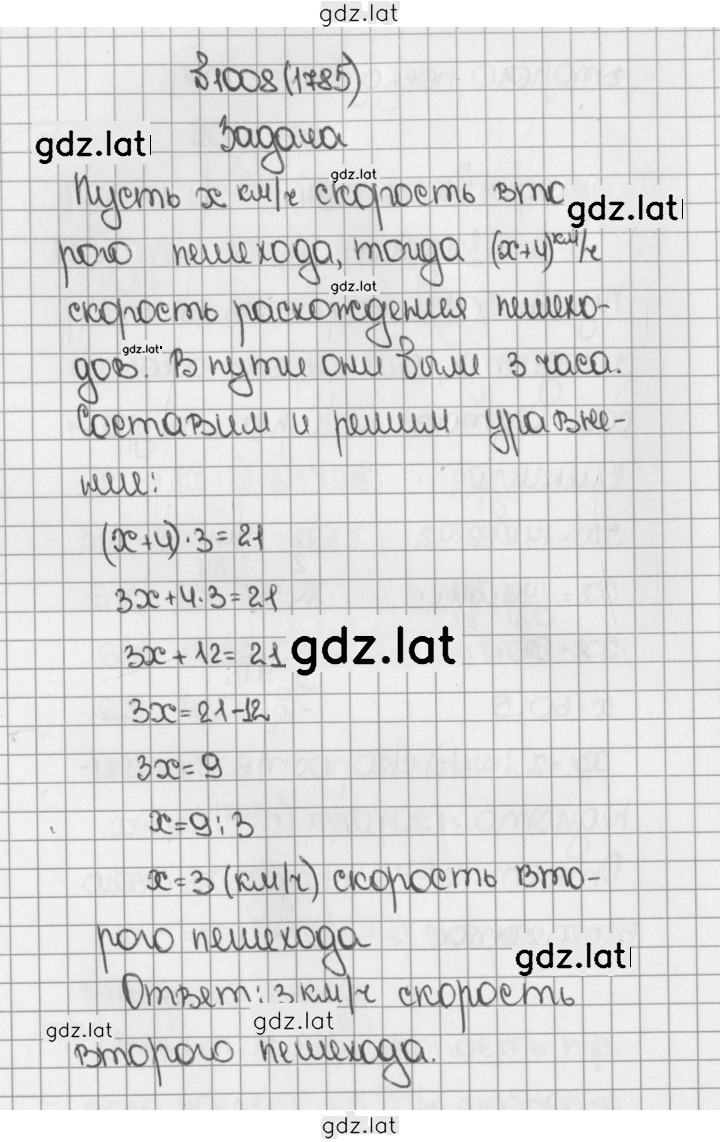 gdz.lat
№1008(1785)
gdz.lat Задача
gdz.lat
Пусть x км/ч скорость вто
gdz.lat
рого пешехода, тогда (x+4)км/ч
gdz.lat
скорость расхождения пешехо-
gdz.lat
дов. В пути они были 3 часа.
Составим и решим уравне-
ние:
(x+4)·3=21
3x+4·3=21
3x+12=21 gdz.lat
3x=21-12
3x=9
x=9:3
x=3 (км/ч) скорость вто-
рого пешехода
gdz.lat
Ответ: 3 км/ч скорость
gdz.lat gdz.lat
второго пешехода.
gdz.lat